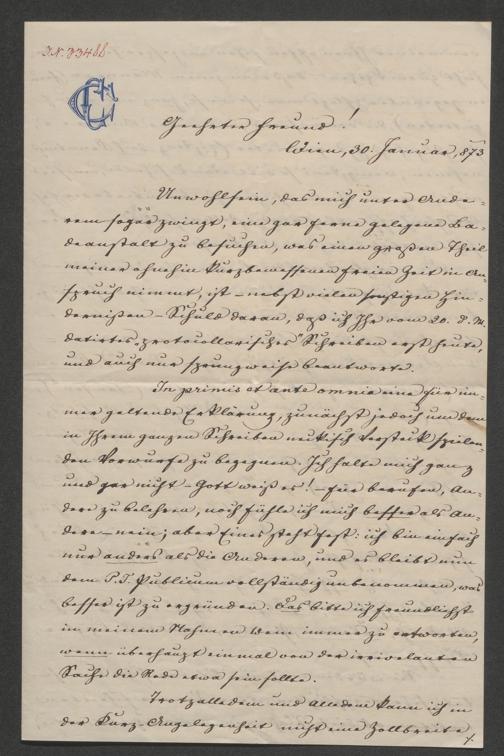 I.N. 33488
CC
Geehrter Freund!
Wien, 30. Januar, 873
Unwohlsein, das mich unter Ande-
rem sogar zwingt, eine gar ferne gelegene Ba-
deanstalt zu besuchen, was einen großen Theil
meiner ohnehin kurzbemessenen freien Zeit in An-
spruch nimmt, ist – nebst vielen sonstigen Hin-
dernißen – Schuld daran, daß ich Ihr vom 20. d. M.
datirtes „protocollarisches" Schreiben erst heute,
und auch nur sprungweise beantworte.
In primis et ante omnia eine für im-
mer geltende Erklärung, zunächst jedoch um dem
in Ihrem ganzen Schreiben neckisch Versteck spielen-
den Vorwurfe zu begegnen. Ich halte mich ganz
und gar nicht – Gott weiß es! – für berufen, An-
dere zu belehren, noch fühle ich mich besser als An-
dere – nein; aber Eines steht fest: ich bin einfach
nur anders als die Anderen, und es bleibt nun
dem P. T. Publicum vollständig unbenommen, was
besser ist zu ergründen. Das bitte ich freundlichst
in meinem Namen wem immer zu antworten,
wenn überhaupt einmal von der irrivelanten
Sache die Rede etwa sein sollte.
Trotzalledem und alledem kann ich in
der Kurz-Angelegenheit nicht eine Zollbreite